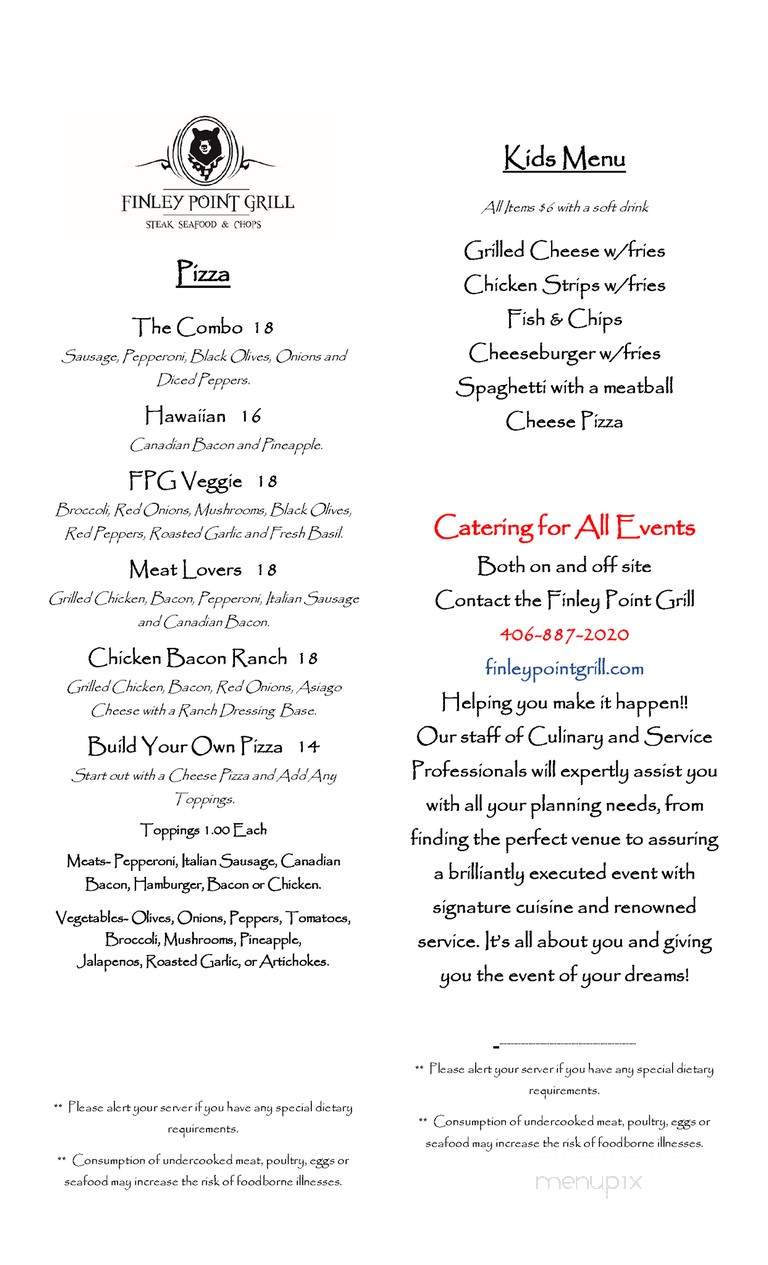 FINLEY POINT GRILL
STEAK SEAFOOD & CHOPS
Pizza
The Combo 18
Sausage, Pepperoni, Black Olives, Onions and
Diced Peppers.
Hawaiian 16
Canadian Bacon and Pineapple.
FPG Veggie 18
Broccoli, Red Onions, Mushrooms, Black Olives,
Red Peppers, Roasted Garlic and Fresh Basil.
Meat Lovers 18
Grilled Chicken, Bacon, Pepperoni, Italian Sausage
and Canadian Bacon.
Chicken Bacon Ranch 18
Grilled Chicken, Bacon, Red Onions, Asiago
Cheese with a Ranch Dressing Base.
Build Your Own Pizza 14
Start out with a Cheese Pizza and Add Any
Toppings.
Toppings 1.00 Each
Meats- Pepperoni, Italian Sausage, Canadian
Bacon, Hamburger, Bacon or Chicken.
Vegetables- Olives, Onions, Peppers, Tomatoes,
Broccoli, Mushrooms, Pineapple,
Jalapenos, Roasted Garlic, or Artichokes.
** Please alert your server if you have any special dietary
requirements.
** Consumption of undercooked meat, poultry, eggs or
seafood may increase the risk of foodborne illnesses.
Kids Menu
All Items $6 with a soft drink
Grilled Cheese w/fries
Chicken Strips w/fries
Fish & Chips
Cheeseburger w/fries
Spaghetti with a meatball
Cheese Pizza
Catering for All Events
Both on and off site
Contact the Finley Point Grill
406-887-2020
finleypointgrill.com
Helping you make it happen!!
Our staff of Culinary and Service
Professionals will expertly assist you
with all your planning needs, from
finding the perfect venue to assuring
a brilliantly executed event with
signature cuisine and renowned
service. It's all about you and giving
you the event of your dreams!
** Please alert your server if you have any special dietary
requirements.
** Consumption of undercooked meat, poultry, eggs or
seafood may increase the risk of foodborne illnesses.
menupix